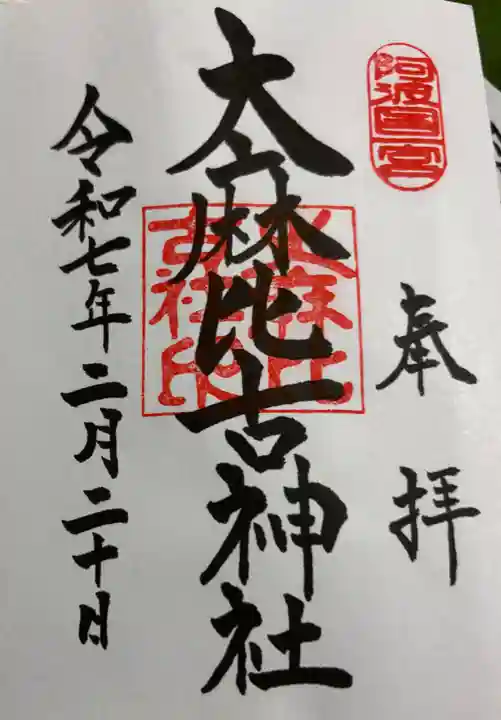 阿波国一宮
奉拝
大麻比古神社
大麻比古社印
令和七年二月二十日